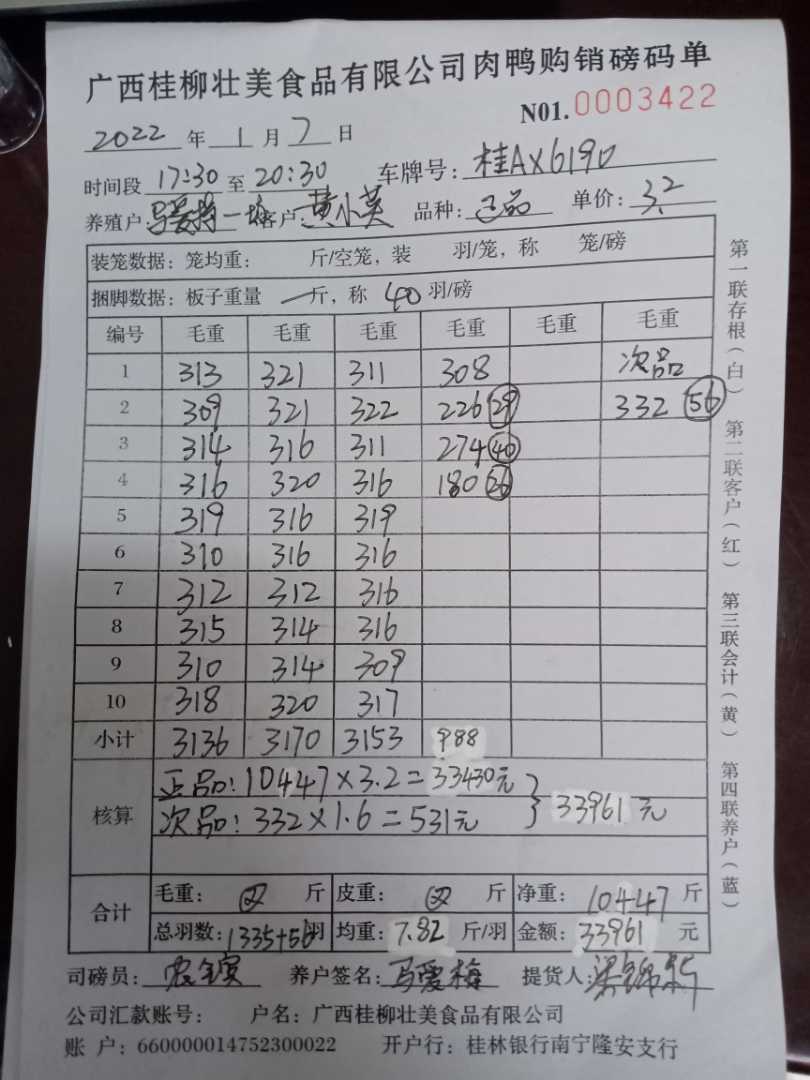 广西桂柳壮美食品有限公司肉鸭购销磅码单
N01.0003422
2022年1月7日
时间段 17:30 至 20:30 车牌号: 桂AX6190
养殖户: 客户: 黄小英 品种: 正品 单价: 3.2
装笼数据: 笼均重: 斤/空笼, 装 羽/笼, 称 笼/磅
捆脚数据: 板子重量 一斤, 称 40 羽/磅
编号 毛重 毛重 毛重 毛重 毛重 毛重
1 313 321 311 308 次品
2 309 321 322 226 29 332 56
3 314 316 311 274 40
4 316 320 316 180 26
5 319 316 319
6 310 316 316
7 312 312 316
8 315 314 316
9 310 314 309
10 318 320 317
小计 3136 3170 3153 988
核算 正品: 10447×3.2=33430元
次品: 332×1.6=531元 } 33961元
合计 毛重: 斤 皮重: 斤 净重: 10447 斤
总羽数: 1335+56羽 均重: 7.82 斤/羽 金额: 33961 元
司磅员: 养户签名: 马爱梅 提货人:
公司汇款账号: 户名: 广西桂柳壮美食品有限公司
账 户: 660000014752300022 开户行: 桂林银行南宁隆安支行
第一联存根(白) 第二联客户(红) 第三联会计(黄) 第四联养户(蓝)